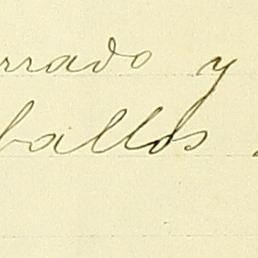 rrado y
ballos